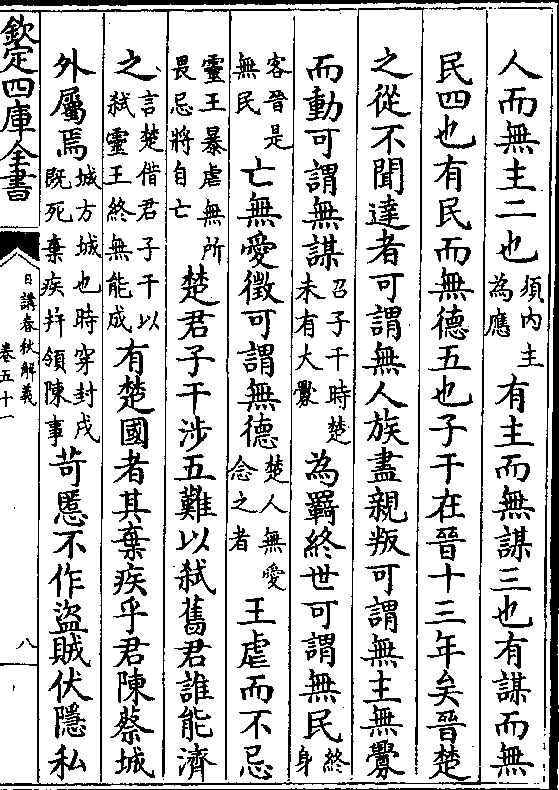 人而無主二也須内主為應有主而無謀三也有謀而無
民四也有民而無德五也子干在晉十三年矣晉楚
之從不聞達者可謂無人族盡親叛可謂無主無釁
而動可謂無謀召子干時楚未有大釁為羇終世可謂無民終身
客晉是無民亡無愛徵可謂無德楚人無愛念之者王虐而不忌
靈王暴虐無所畏忌將自亡楚君子干涉五難以弑舊君誰能濟
之言楚借君子干以弑靈王終無能成有楚國者其棄疾乎君陳蔡城
外屬焉城方城也時穿封戌既死棄疾并領陳事苛慝不作盜賊伏隱私
欽定四庫全書
日講春秋解義
卷五十一
八